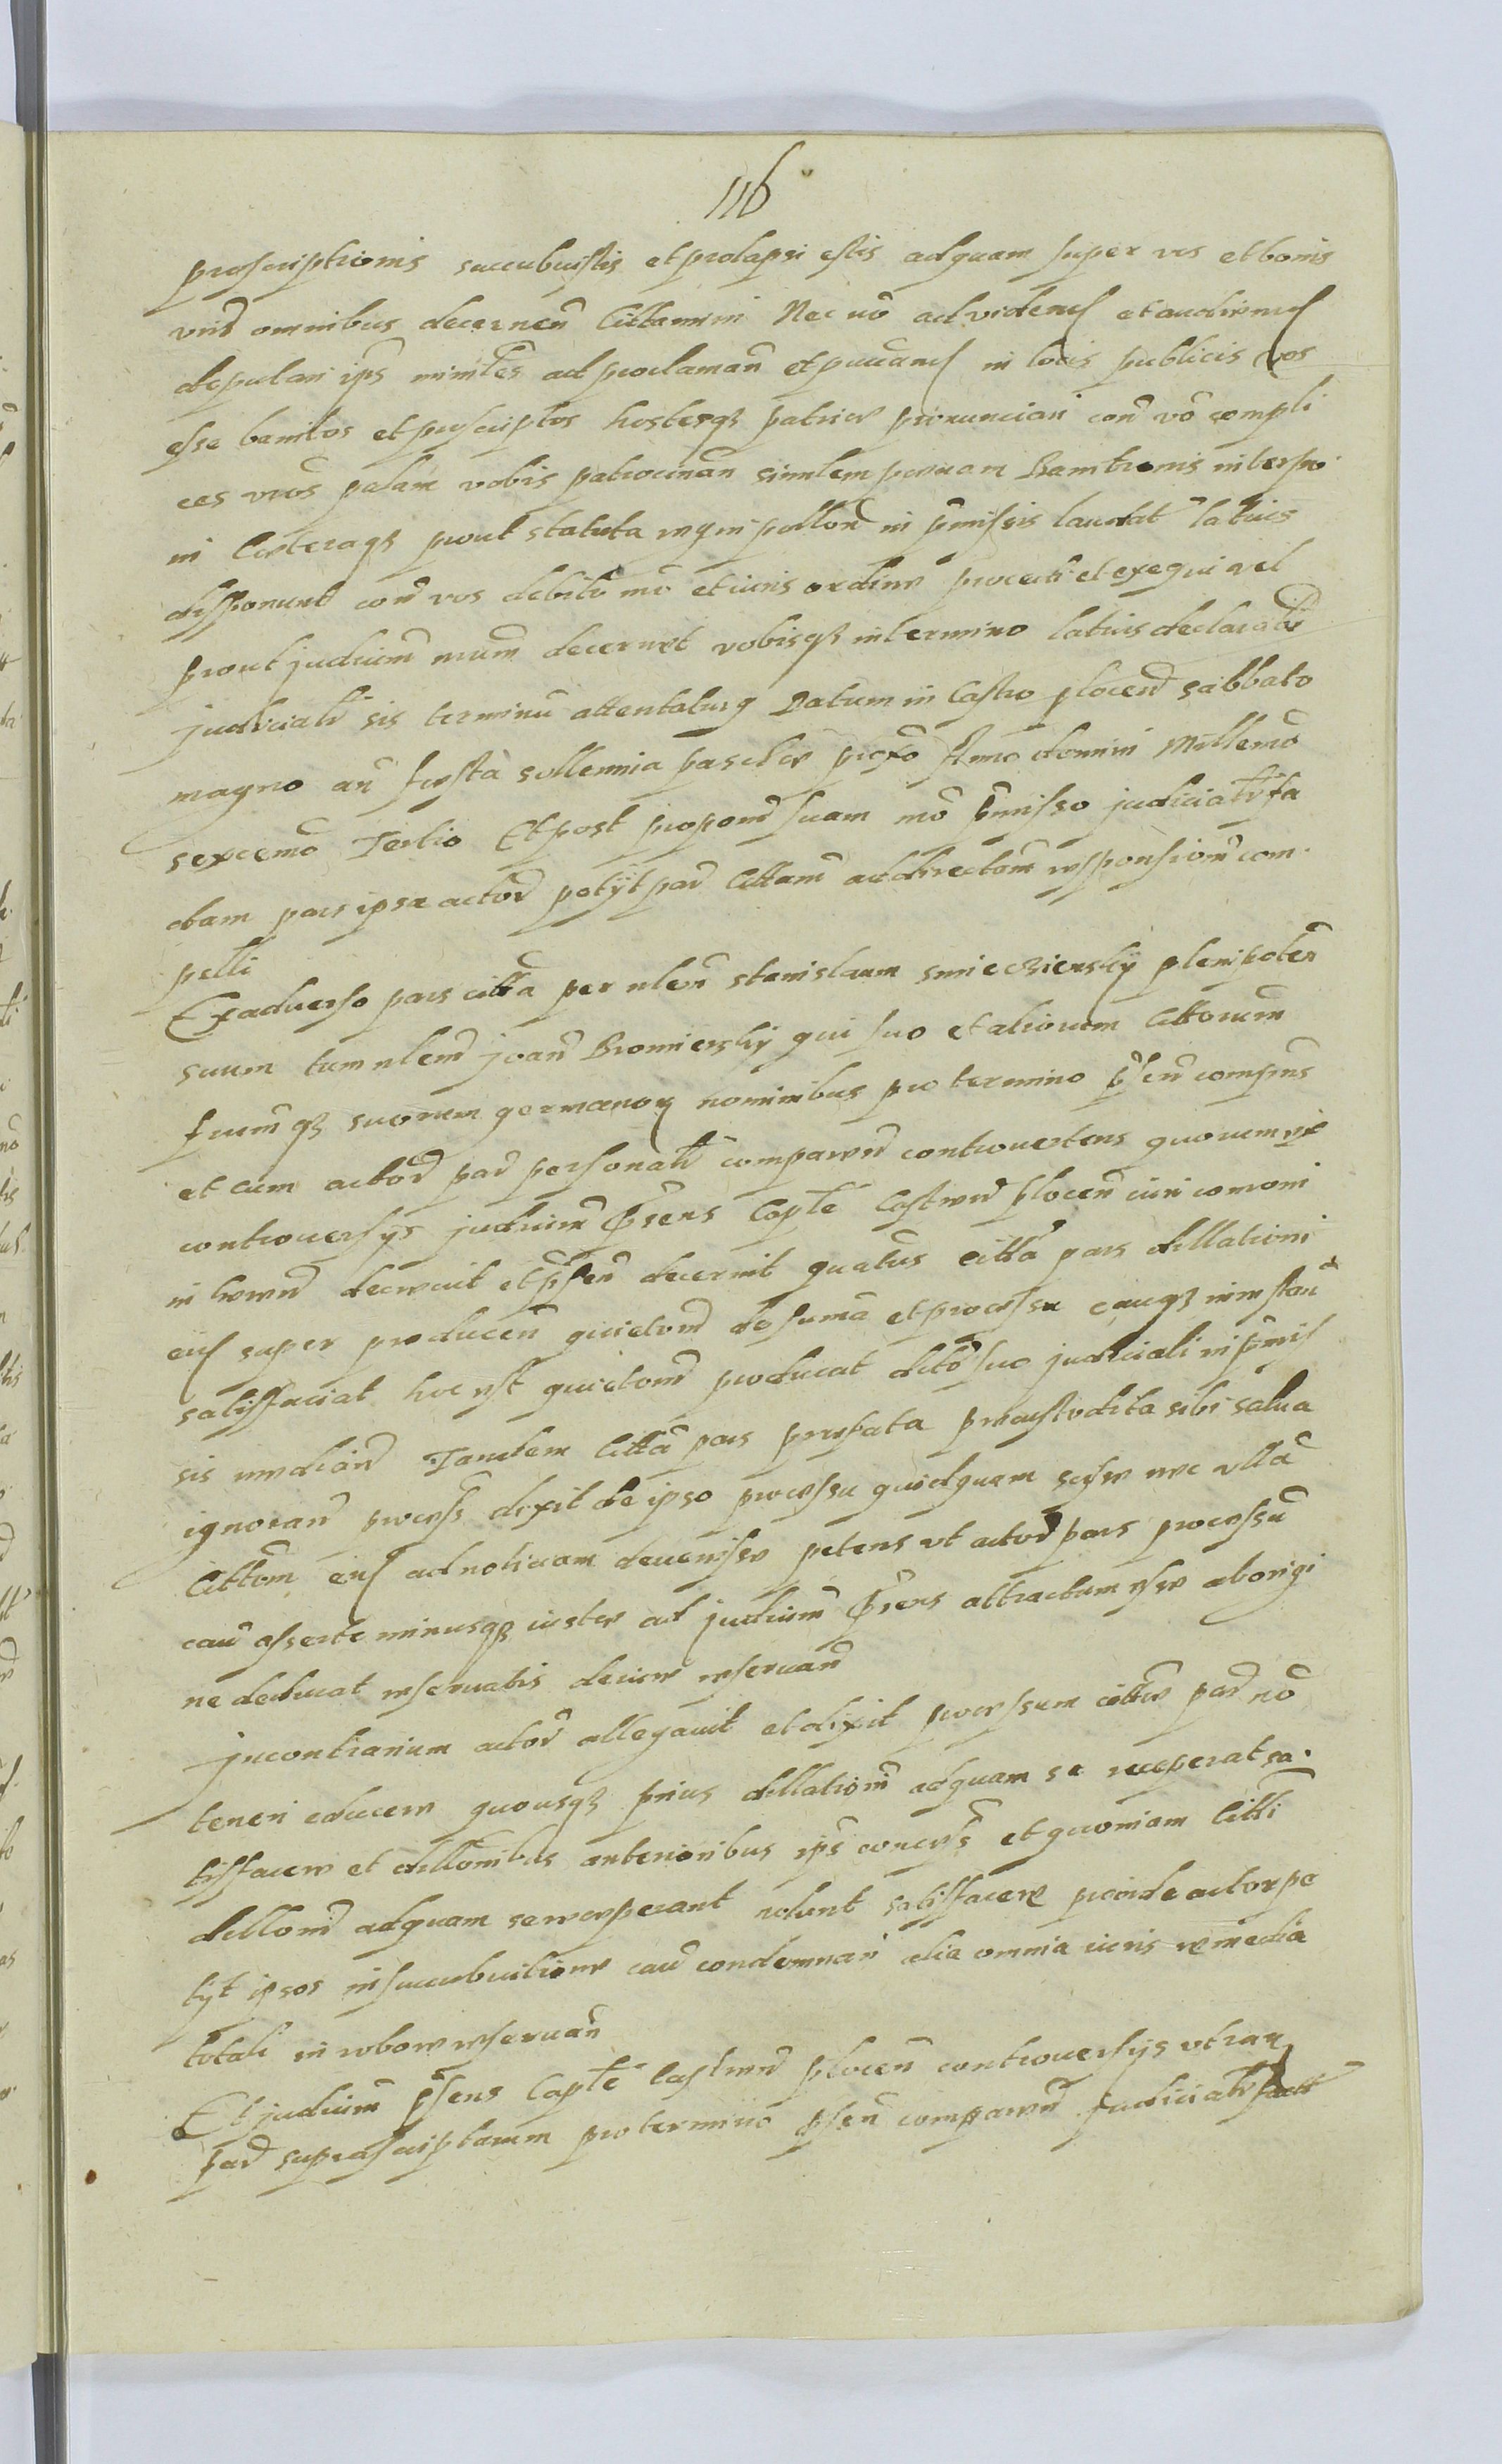 116
proscriptionis succubuistis et prolapsi estis ad quam super vos et bonis
vrīs omnibus decernen̄ Cittamini Nec nō ad viden̄d et audien̄d
deputari ips̄ minrlēs ad proclaman̄ et puuan̄d in locis publicis vos
esse banitos et proscriptos hostesqз patriæ pronunciari con̄ vō compli
ces vrōs palam vobis patrocinan̄ similem pœnam Banitionis interpo
ni Cæteraqз prout statuta regni pollon̄ in p̄missis laudat̄ latius
disponunt con̄ vos debito mō et iuris ordine procedi et exequi vel
prout judicium mum̄ decernet vobisqз in termino latius declarabr̄
judicialr̄ sis terminū attentaturꝗ Datum in Castro plocen̄ sabbato
magno an̄ festa sollennia paschæ proxō Anno domini Millemō
sexcemō Tertio Et post propon̄ suam mō p̄misso judicialr̄ fa
ctam pars ipsa actor̄ petijt par̄ Cittam̄ ad directam̄ responsionem̄ com
pelli
Ex aduerso pars citta̅ per nlem̄ stanislaum smieczienskÿ plenipoten̄
suum tum nlem̄ joan̄ Bromierskÿ qui suo et aliorum Cittorum̄
frum̄qз suorum germanoꝝ nominibus pro termino p̄sen̄ comprns̄
et cum actor̄ par̄ personalr̄ comparen̄ controuertens quorum ex
controuersijs judicium p̄sens Caple̅ Castren̄ plocen̄ iuri comoni
inhæren̄ decreuit et p̄sen̄ decernit quatus̄ citta̅ pars dillationi
eid super producen̄ quietom̄ de summa et processu eiusqз in instan̄
satisfaciat hoc est quietom̄ producat dicto̅ suo judiciali in p̄mis
sis median̄ Tandem Citta̅ pars præfata præcustodita sibi salua
ignoran̄ process̄ dixit de ipso processu quidquam scire nec ulla̅
Cittom̄ eid ad notitiam deuenisse petens vt actor̄ pars processū
cau̅ asserte minusqз iuste ad judicium̄ p̄sens attractum esse ab origi
ne deducat reseruatis de iure reseruan̄
In contrarium actor̄ allegauit et dixit processum cittæ par̄ nō
teneri educere quousqз prius dillationi̅ ad quam se receperat sa
tisfacere et dillonibus anterioribus ips̄ concess̄ et quoniam Citti̅
dillom̄ ad quam se receperant nolunt satisfacere proinde actor pe
tijt ipsos in succubuitione cau̅ condemnari alia omnia iuris remedia
totali in robore reseruan̄
Et judicium̄ p̄sens Caple̅ castren̄ plocen̄ controuersijs vtrarꝗ
par̄ suprascriptarum pro termino p̄sen̄ comparen̄ judicialr̄ fact̄